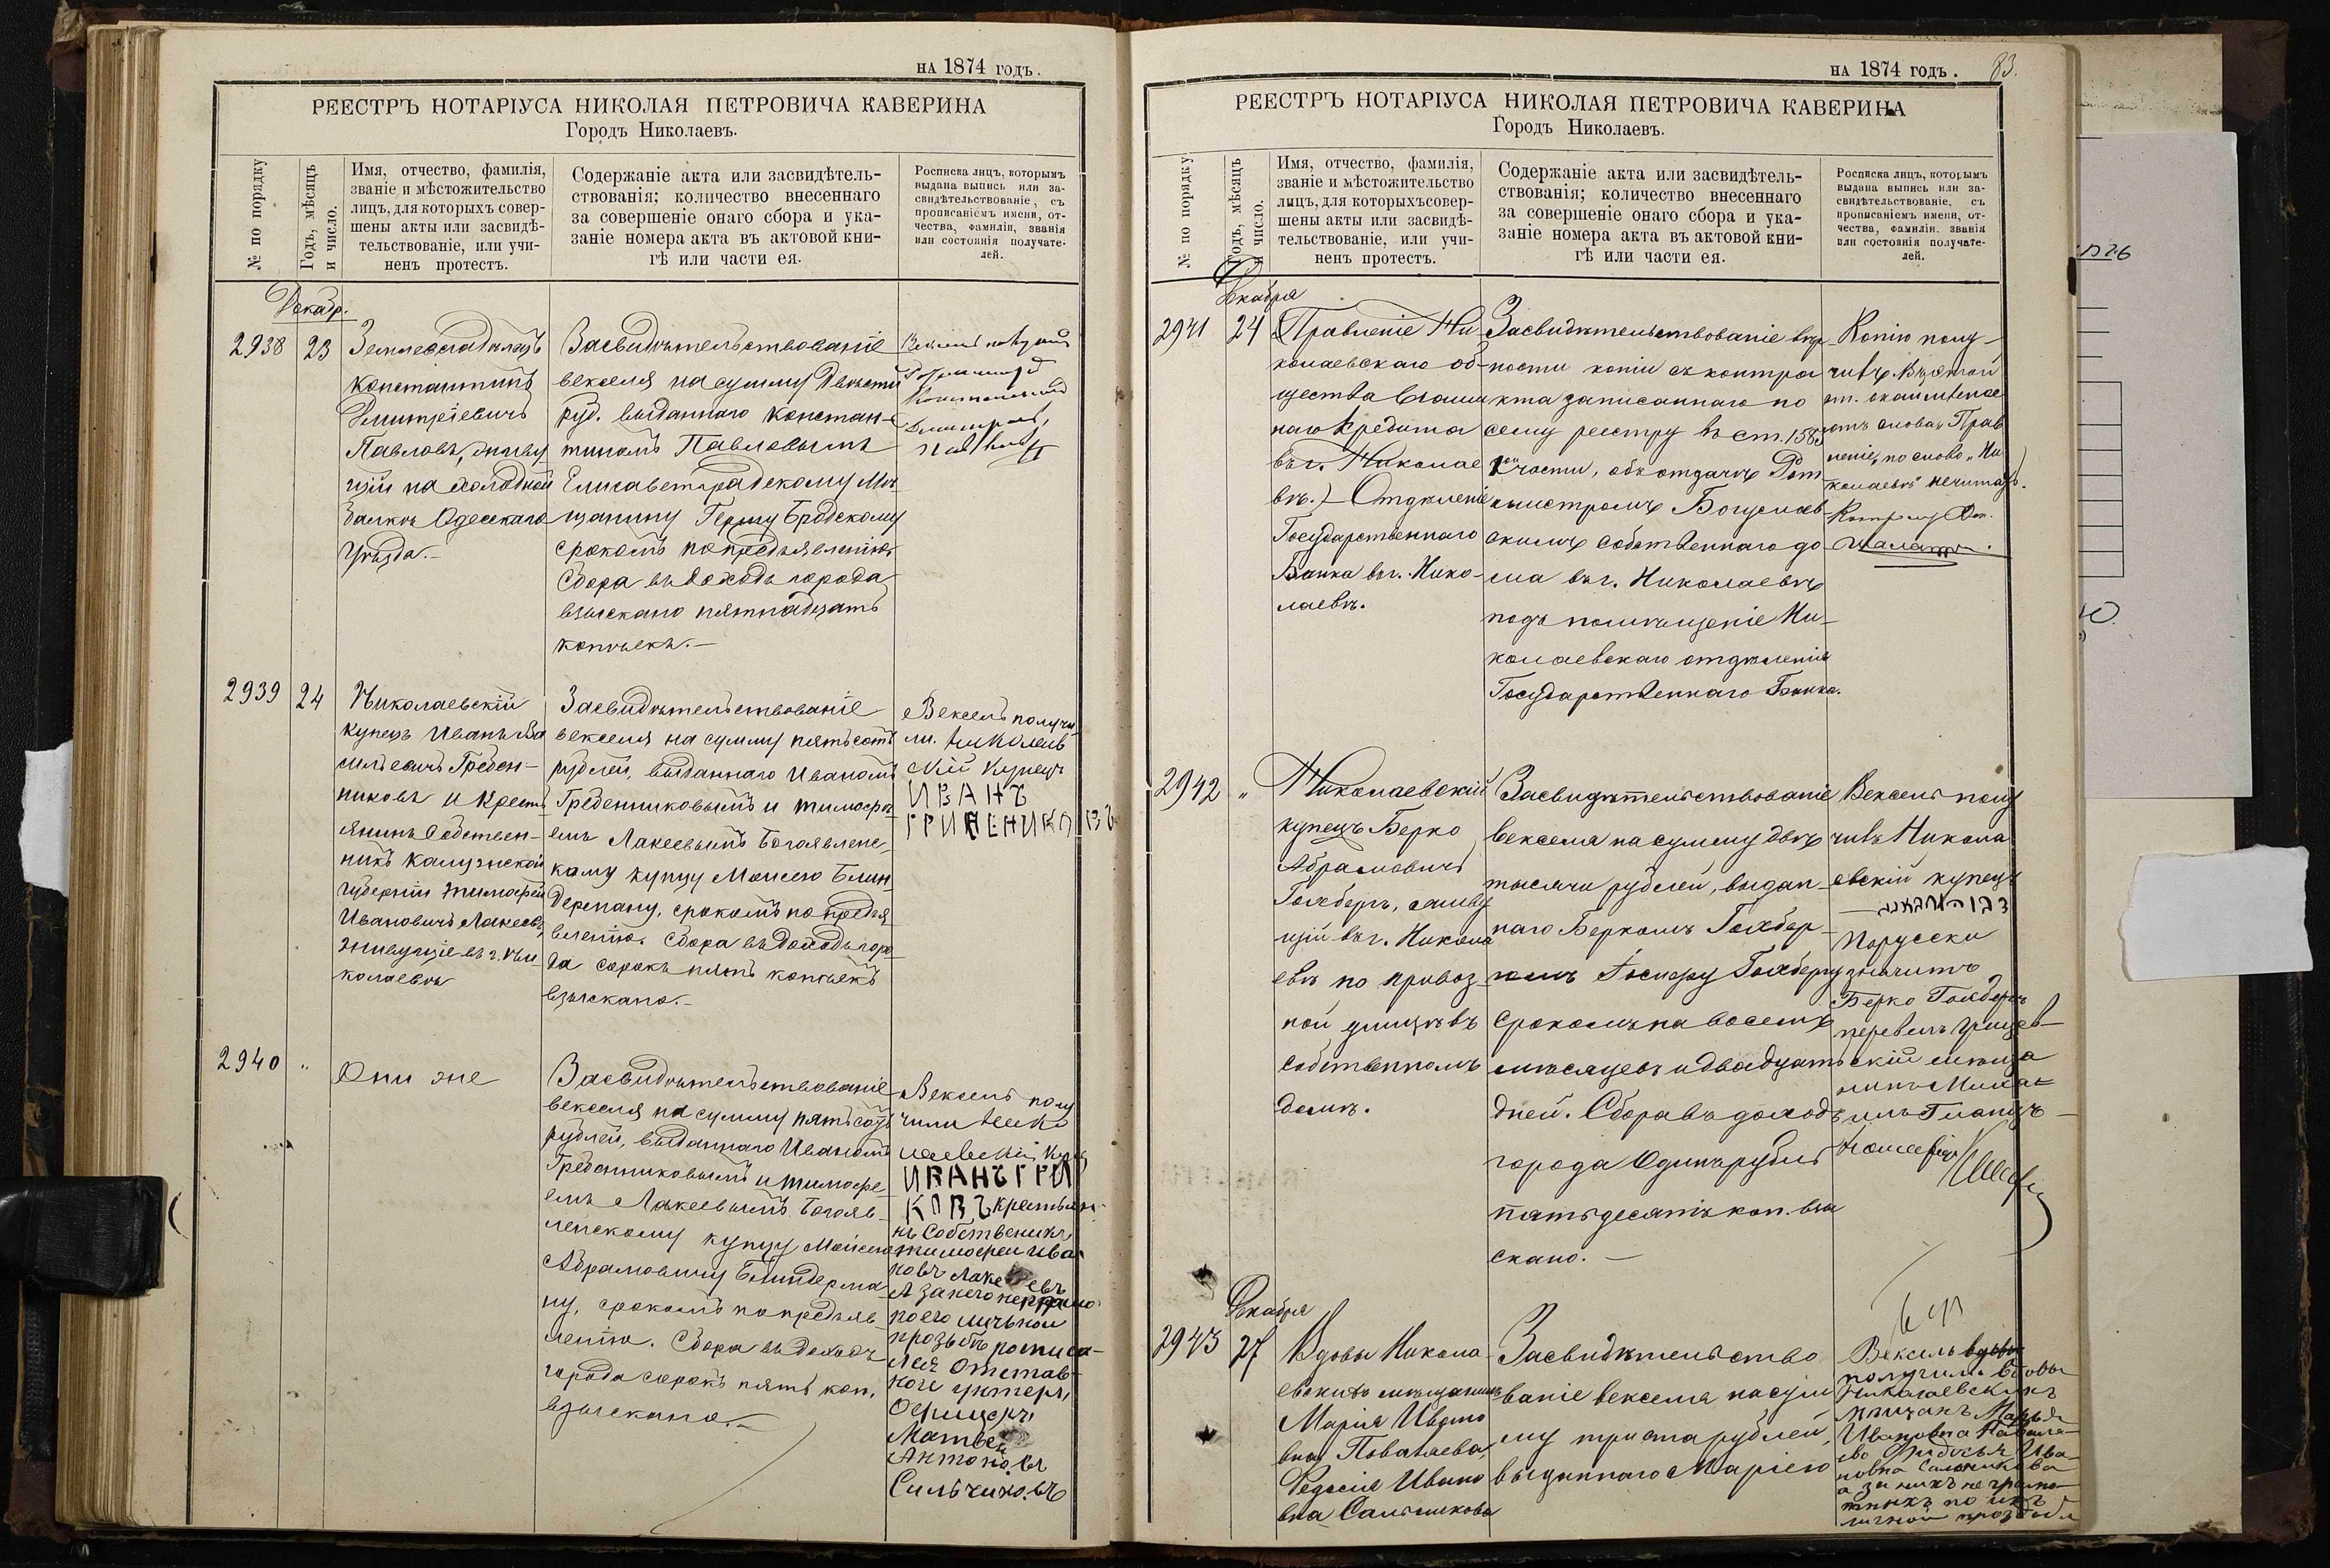 НА 1874 годъ.
РЕЕСТРЪ НОТАРІУСА НИКОЛАЯ ПЕТРОВИЧА КАВЕРИНА
Городъ Николаевъ.
№ по порядку
Годъ, мѣсяцъ
и число.
Имя, отчество, фамилія,
званіе и мѣстожительство
лицъ, для которыхъ совер-
шены акты или засвидѣ-
тельствованіе, или учи-
ненъ протестъ.
Содержаніе акта или засвидѣтель-
ствованія; количество внесеннаго
за совершеніе онаго сбора и ука-
заніе номера акта въ актовой кни-
гѣ или части ея.
Росписка лицъ, которымъ
выдана выпись или за-
свидѣтельствованіе, съ
прописаніемъ имени, от-
чества, фамиліи, званія
или состоянія получате-
лей.
Декабр.
2938
23
Землевладѣлецъ
Константинъ
Дмитріевичъ
Павловъ, живу
щій на холодной
балкѣ Одесскаго
уѣзда.-
Засвидѣтельствованіе
векселя на сумму двѣсти
руб. выданнаго Констан-
тиномъ Павловымъ
Елисаветградскому Мѣ-
щанину Гершу Бродскому
срокомъ по предъявленію
Сбора въ доходъ города
взыскано пятнадцать
копѣекъ.-
2939
24
Николаевскій
купецъ Иванъ Ва
сильевичъ Гребен-
никовъ и Кресть
янинъ Собствен-
никъ Калужской
губерніи Тимофей
Ивановичъ Лакеевъ,
живущіе въ г. Ни
колаевѣ
Засвидѣтельствованіе
векселя на сумму пятьсотъ
рублей, выданнаго Иваномъ
Гребенниковымъ и Тимофѣ
емъ Лакеевымъ Богоявленс
кому купцу Моисею Блин
дерману, срокомъ по предъя
вленію. Сбора въ доходъ горо
да сорокъ пять копѣекъ
взыскано.-
Вексель получи
ли. Николаев
скій Купецъ
ИВАНЪ
2940
"
Они же
Засвидѣтельствованіе
векселя на сумму пятьсотъ
рублей, выданнаго Иваномъ
Гребенниковымъ и Тимофе
емъ Лакеевымъ Богояв-
ленскому купцу Моисею
Абрамовичу Блиндерма
ну, срокомъ по предъяв-
ленію. Сбора въ доходъ
города сорокъ пять коп.
взыскано.-
Вексель полу
чили Нико
лаевскій Куп
ИВАНЪ ГРИ
КОВЪ Крестьян
нъ Собственикъ
Тимофеи Ива
новъ Лакеевъ
А за него неграмо
по его личьной
прозьбе росписа-
лся Отстав-
ной унтеръ
Офицеръ
Матвей
Антоновъ
НА 1874 годъ.
83.
РЕЕСТРЪ НОТАРІУСА НИКОЛАЯ ПЕТРОВИЧА КАВЕРИНА
Городъ Николаевъ.
№ по порядку
Годъ, мѣсяцъ
и число.
Имя, отчество, фамилія,
званіе и мѣстожительство
лицъ, для которыхъ совер-
шены акты или засвидѣ-
тельствованіе, или учи-
ненъ протестъ.
Содержаніе акта или засвидѣтель-
ствованія; количество внесеннаго
за совершеніе онаго сбора и ука-
заніе номера акта въ актовой кни-
гѣ или части ея.
Росписка лицъ, которымъ
выдана выпись или за-
свидѣтельствованіе, съ
прописаніемъ имени, от-
чества, фамиліи, званія
или состоянія получате-
лей.
Декабря
2941
24
(Правленіе Ни
колаевскаго об-
щества взаим
наго Кредита
въ г. Николае
вѣ.) Отдѣленіе
Государственнаго
Банка въ г. Нико-
лаевѣ.
Засвидѣтельствованіе вѣр
ности копіи съ контра
кта записаннаго по
сему реестру въ ст. 1585
1ой части, объ отдачѣ Рот
мистромъ Богуслав-
скимъ собственнаго до
ма въ г. Николаевѣ
подъ помѣщеніе Ни-
колаевскаго отдѣленія
Государственнаго Банка.
Копію полу-
чилъ. Въ этой
ст. окаймленное
отъ слова "Прав
леніе, по слово "Ни
колаевѣ" нечитать.
2942
"
Николаевскій
купецъ Берко
Абрамовичъ
Гохбергъ, живу
щій въ г. Никола
евѣ по привоз-
ной улицѣ въ
собственномъ
домѣ.
Засвидѣтельствованіе
векселя на сумму двѣ
тысячи рублей, выдан-
наго Беркомъ Гохбер-
гомъ Іосифу Гохбергу
срокомъ на восемь
мѣсяцевъ и двадцать
дней. Сбора въ доходъ
города Одинъ рубль
пятьдесятъ коп. взы
скано.-
Вексель полу
чилъ Никола
евскій купецъ
Порусски
значитъ
Берко Гохбергъ
перевелъ
скій мѣща
нинъ
Декабря
2943
27
Вдовы Никола
евскихъ мѣщанинъ
Марія Ивано
вна Поваляева,
Федосія Ивано
вна Сальникова
Засвидѣтельство
ваніе векселя на сум
му триста рублей,
выданнаго Маріею
Вексель вдовы
получили вдовы
Николаевскихъ
мѣщанъ Марья
Ивановна Поваля-
ева Федосья Ива-
новна Сальникова
а за нихъ не грамо-
тныхъ по ихъ
личной прозьбѣ